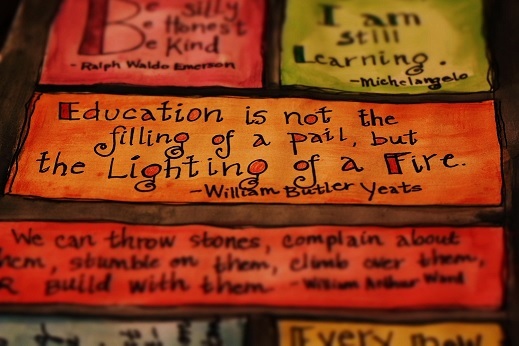 Be silly
Be Honest
Be Kind
- Ralph Waldo Emerson
I am
still
Learning.
-Michelangelo
Education is not the
filling of a pail, but
the Lighting of a Fire.
-William Butler Yeats
We can throw stones, complain about
hem, stumble on them, climb over them,
R Build with them - William Arthur Ward
Every